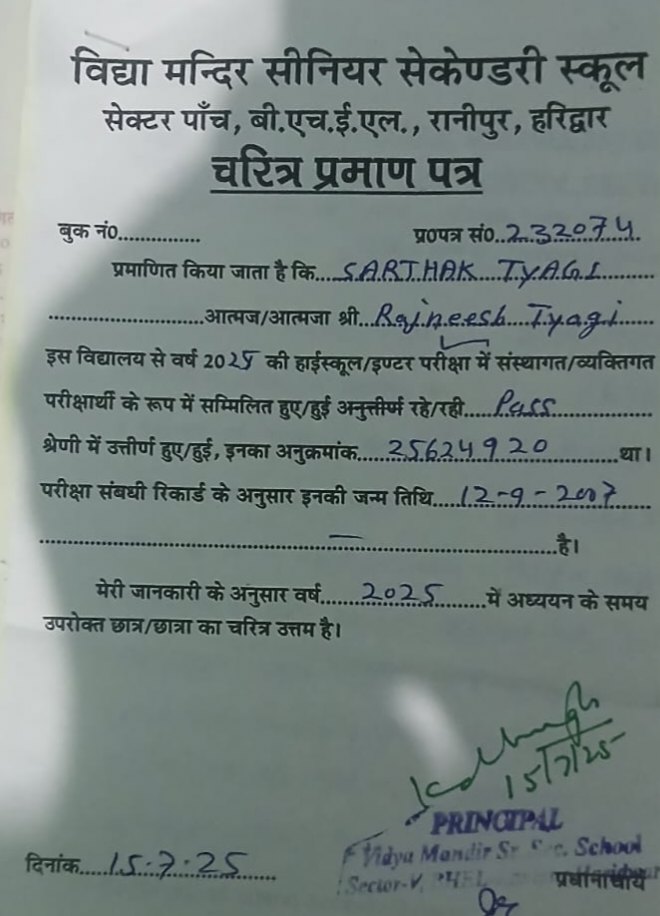 विद्या मन्दिर सीनियर सेकेण्डरी स्कूल
सेक्टर पाँच, बी.एच.ई.एल., रानीपुर, हरिद्वार
चरित्र प्रमाण पत्र
बुक नं०............... प्र०पत्र सं०..232074.
प्रमाणित किया जाता है कि....SARTHAK TYAGI..........
............................आत्मज/आत्मजा श्री..Rajneesh Tyagi......
इस विद्यालय से वर्ष 2025 की हाईस्कूल/इण्टर परीक्षा में संस्थागत/व्यक्तिगत
परीक्षार्थी के रूप में सम्मिलित हुए/हुई अनुत्तीर्ण रहे/रही.....Pass..............
श्रेणी में उत्तीर्ण हुए/हुई, इनका अनुक्रमांक.....25624920............था।
परीक्षा संबधी रिकार्ड के अनुसार इनकी जन्म तिथि....12-9-2007......
.................................—.................................है।
मेरी जानकारी के अनुसार वर्ष.........2025.........में अध्ययन के समय
उपरोक्त छात्र/छात्रा का चरित्र उत्तम है।
15/7/25
PRINCIPAL
Vidya Mandir Sr. Sec. School
Sector-V, BHEL
दिनांक.....15.7.25...... प्रधानाचार्य